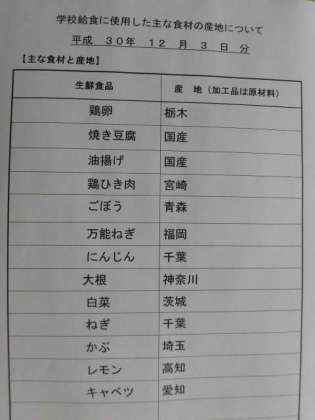 学校給食に使用した主な食材の産地について
平成 30年 12 月 3 日 分
【主な食材と産地】
生鮮食品 産 地（加工品は原材料）
鶏卵 栃木
焼き豆腐 国産
油揚げ 国産
鶏ひき肉 宮崎
ごぼう 青森
万能ねぎ 福岡
にんじん 千葉
大根 神奈川
白菜 茨城
ねぎ 千葉
かぶ 埼玉
レモン 高知
キャベツ 愛知